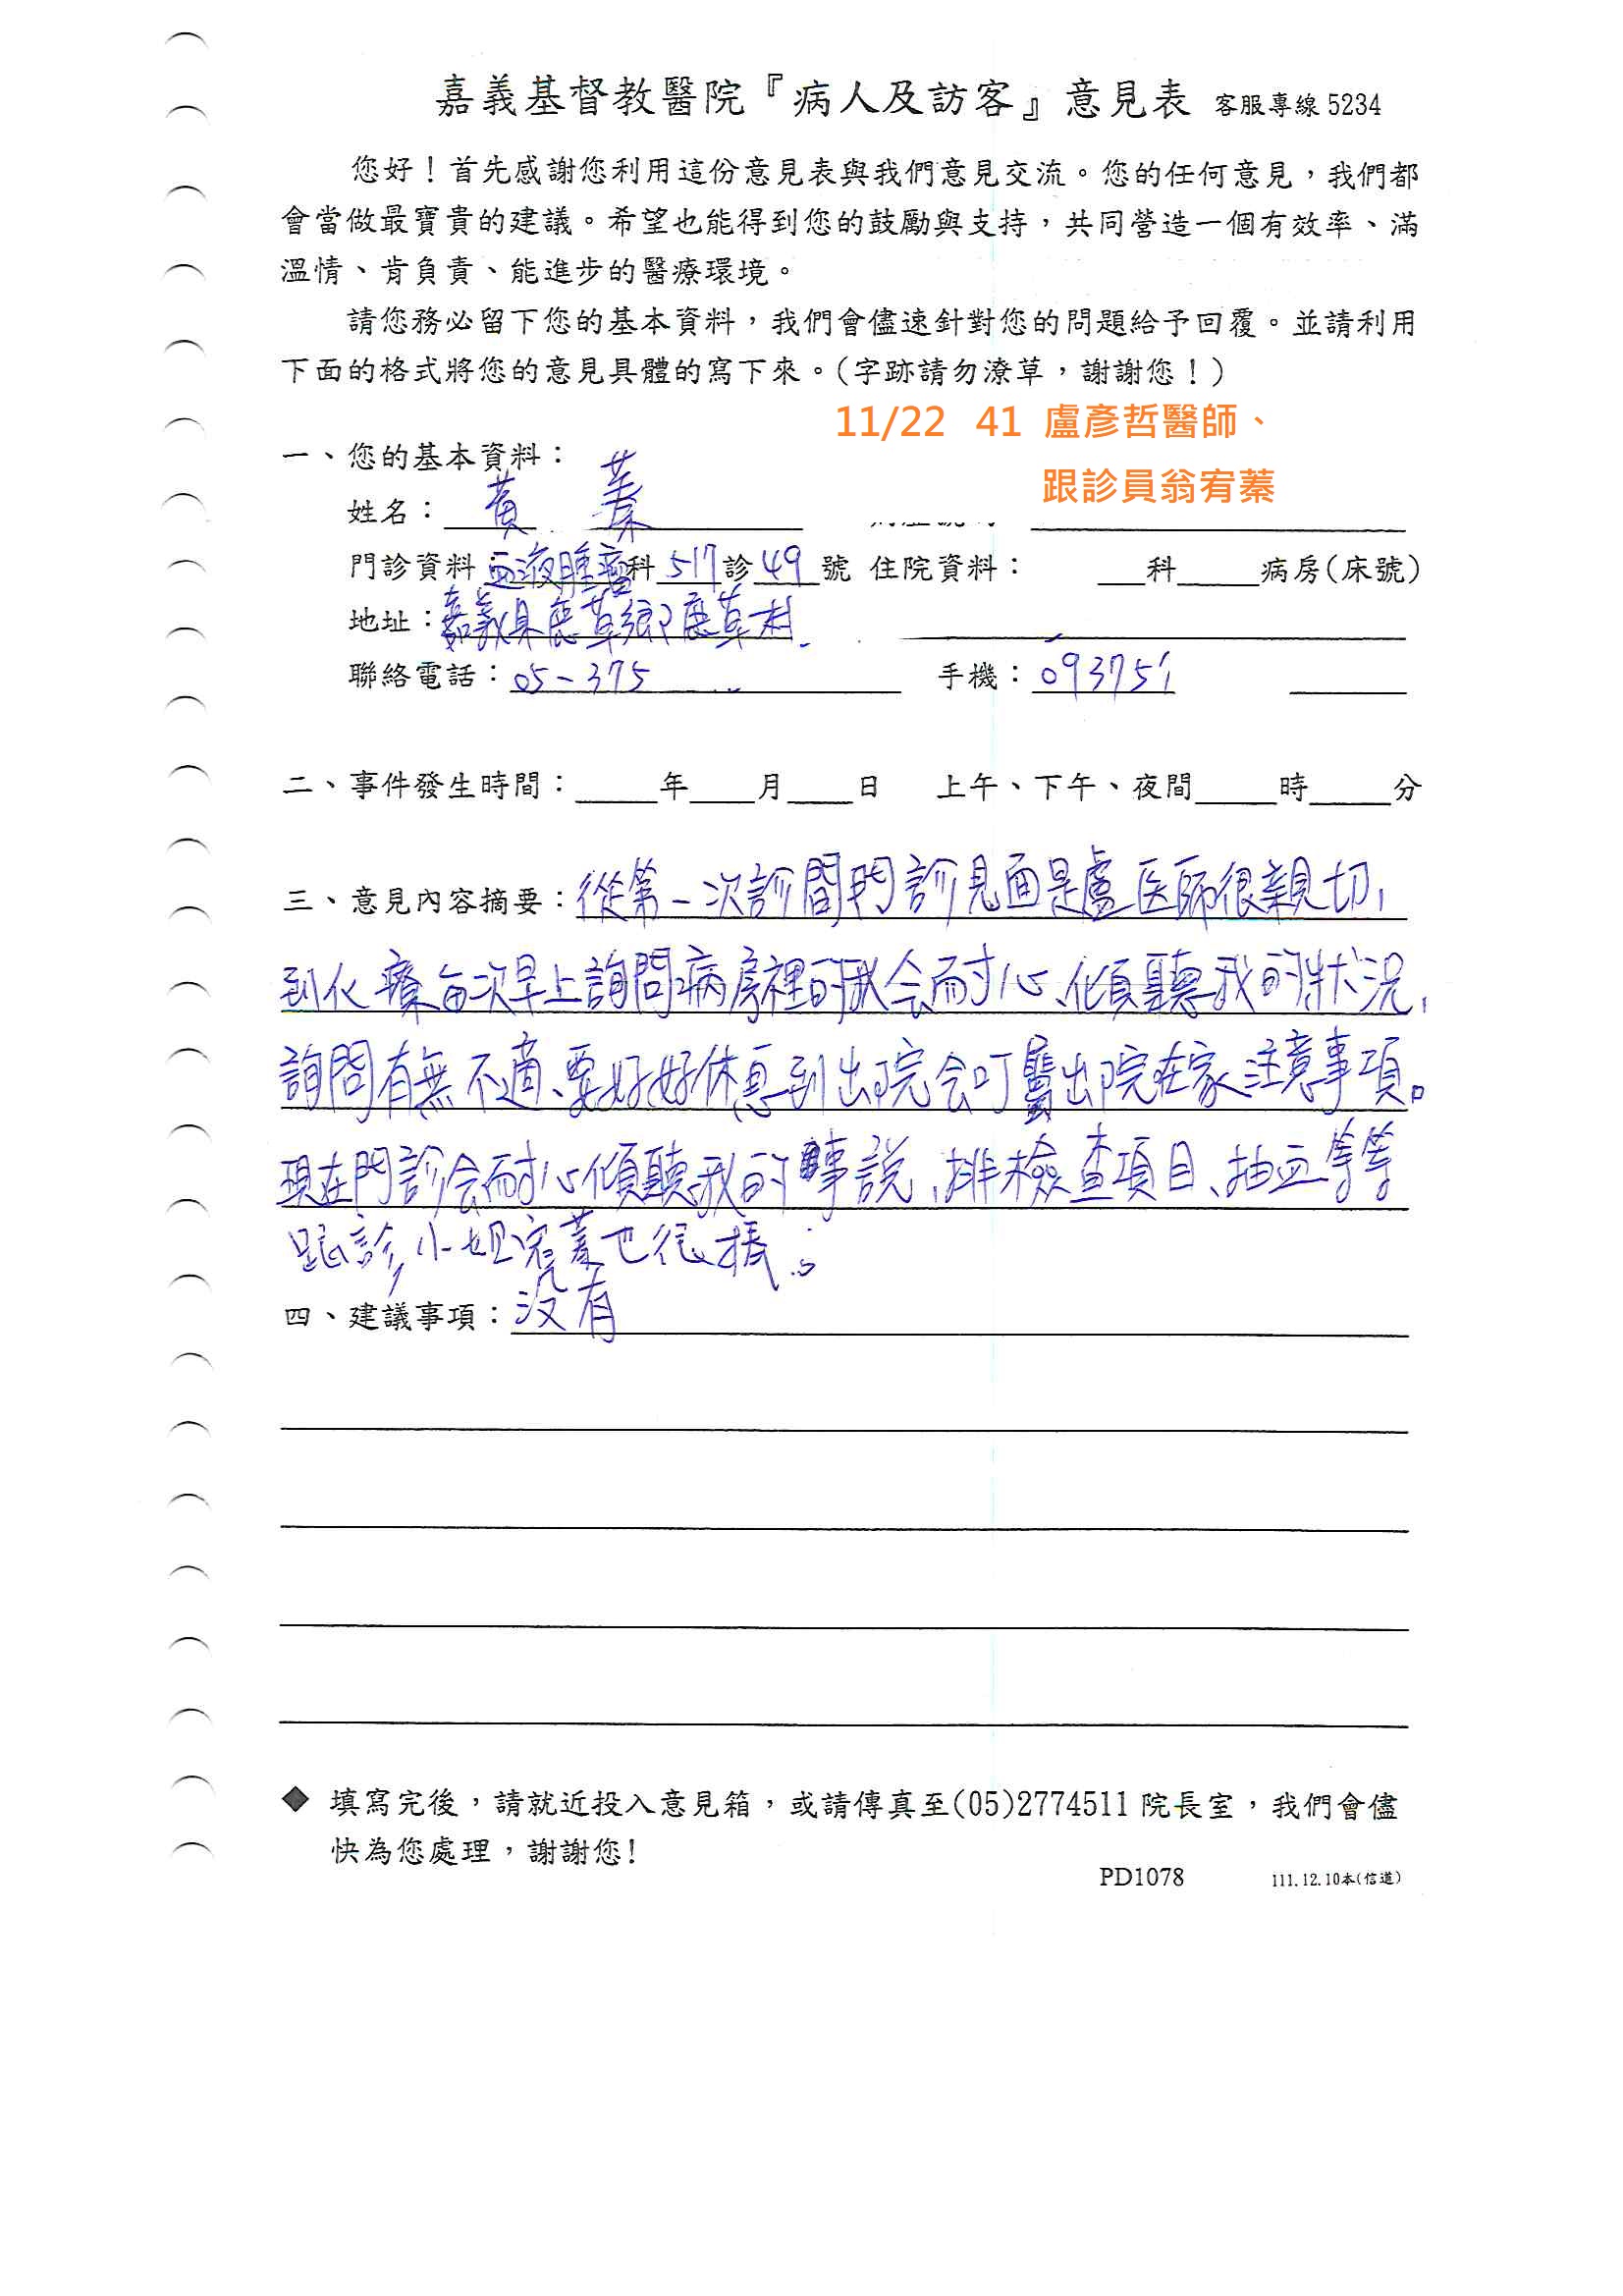 嘉義基督教醫院『病人及訪客』意見表 客服專線 5234
您好！首先感謝您利用這份意見表與我們意見交流。您的任何意見，我們都
會當做最寶貴的建議。希望也能得到您的鼓勵與支持，共同營造一個有效率、滿
溫情、肯負責、能進步的醫療環境。
請您務必留下您的基本資料，我們會儘速針對您的問題給予回覆。並請利用
下面的格式將您的意見具體的寫下來。(字跡請勿潦草，謝謝您！)
11/22 41 盧彥哲醫師、
一、您的基本資料：
跟診員翁宥蓁
姓名：黃 蓁
門診資料 血液腫瘤科 517 診 49 號 住院資料： 科 病房(床號)
地址：嘉義县鹿草鄉鹿草村
聯絡電話：05-375 手機：093751
二、事件發生時間： 年 月 日 上午、下午、夜間 時 分
三、意見內容摘要：從第一次診間門診見面是盧医師很親切，
到化療每次早上詢問病房裡的我会耐心、傾聽我的狀況，
詢問有無不適、要好好休息到出院会叮嚀出院在家注意事項。
現在門診会耐心傾聽我的事說、排檢查項目、抽血等等
跟診小姐宥蓁也很棒。
四、建議事項：沒有
◆ 填寫完後，請就近投入意見箱，或請傳真至(05)2774511 院長室，我們會儘
快為您處理，謝謝您!
PD1078 111.12.10本(信道)